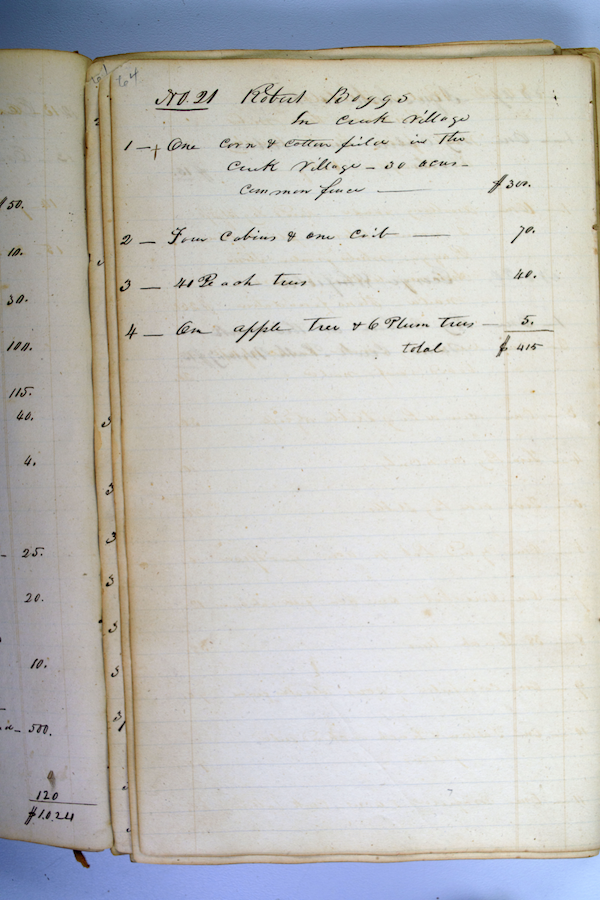 $50.
10.
30.
100.
115.
40.
4.
25.
20.
10.
500.
120
$1024
64
No. 21 Robert Boggs
In Creek Village
1 — One Corn & Cotton field in the
Creek Village — 30 acres —
Common fence — $300.
2 — Four Cabins & one Crib — 70.
3 — 40 Peach trees 40.
4 — On apple tree & 6 Plum trees — 5.
total $415